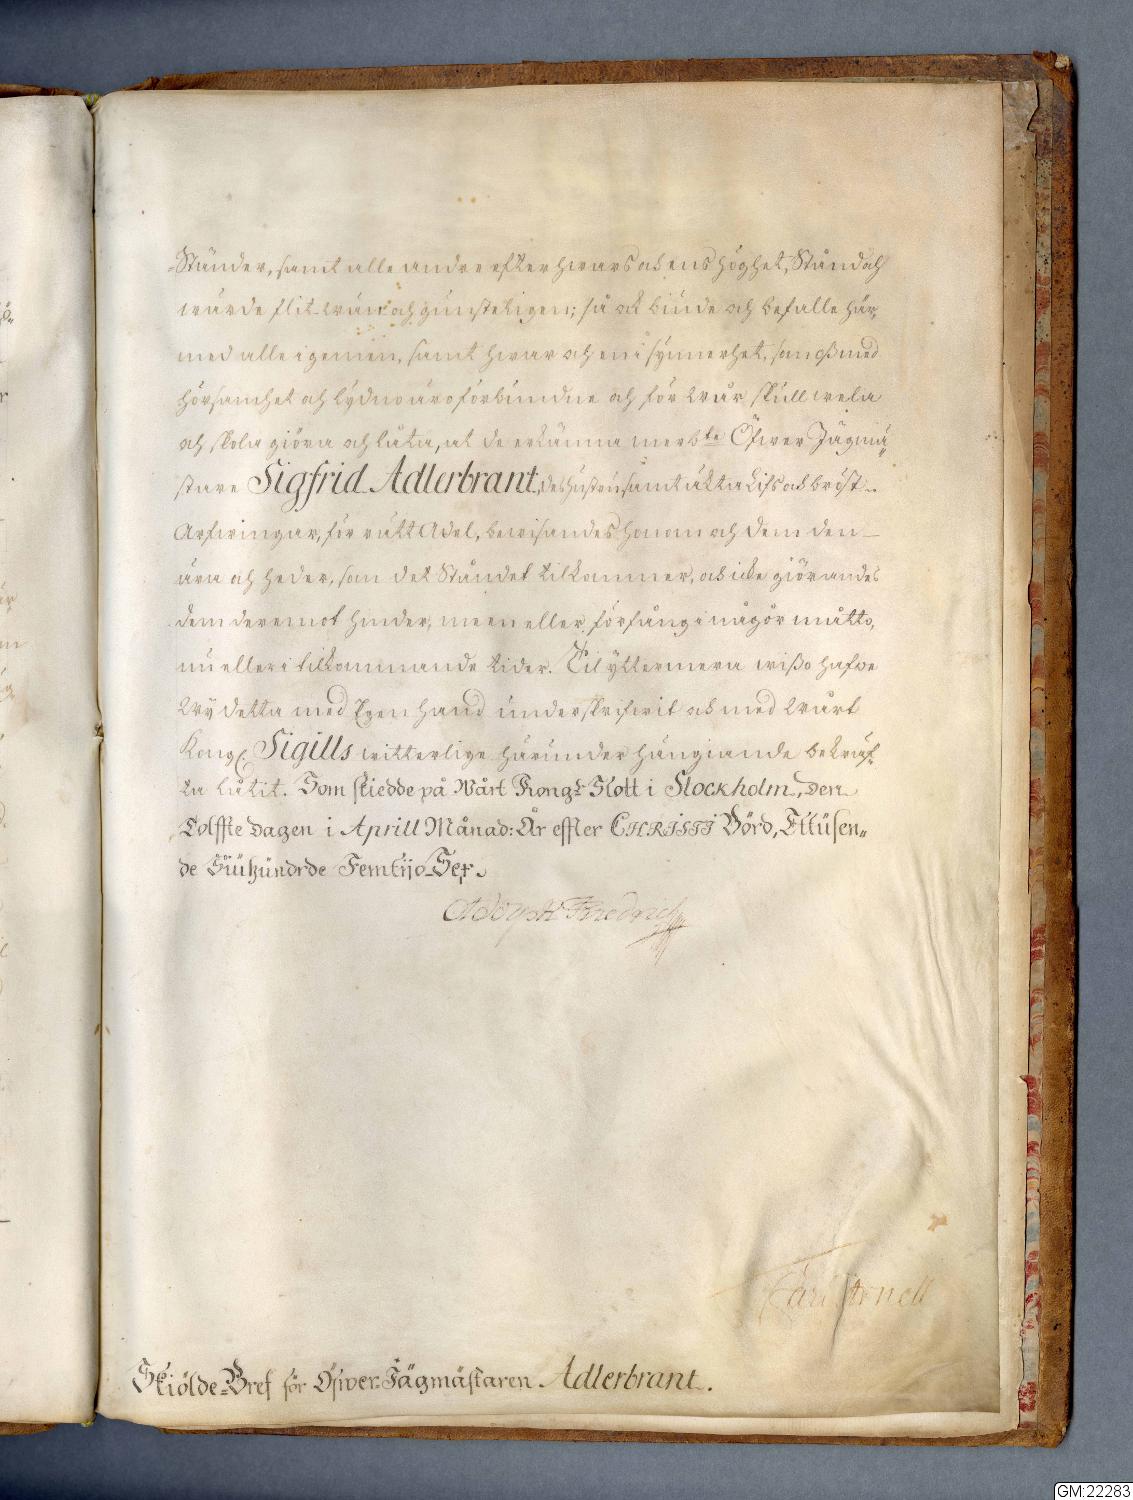 -Ständer, samt alle andre efter hwars ock ens höghet, Stånd och
wärde flit-wän- och günsteligen; så ock biude och befalle här,,
med alle i gemen, samt hwar och en i synnerhet, som Oß med
hörsamhet och lydno äro förbundne och för Wår skull welia
och skola giöra och låta, at de erkänna merbte Öfwer Jägmä,,
stare Sigfrid Adlerbrant, des hustru samt äkta Lifs ock bröst-
Arfwingar, för rätt Adel, bewisandes honom och dem den
ära och heder, som det Ståndet tilkommer, ock icke giörandes
dem deremot hinder, meen eller förfång i någor måtto,
nu eller i tilkommande tider. Til yttermera wißo hafwe
Wy detta med Egen hand underskrifwit ock med Wårt
Kongl. Sigills witterlige härunder hängiande bekräf,,
ta låtit. Som skiedde på Wårt Kongl. Slott i Stockholm, den
Tolffte Dagen i Aprill Månad: År effter CHRISTI Börd, Ettüsen,,
de Siühündrde Femtijo-Sex.
Adolph Friedrich
Skiölde-Bref för Öfwer-Jägmästaren Adlerbrant.
GM:22283